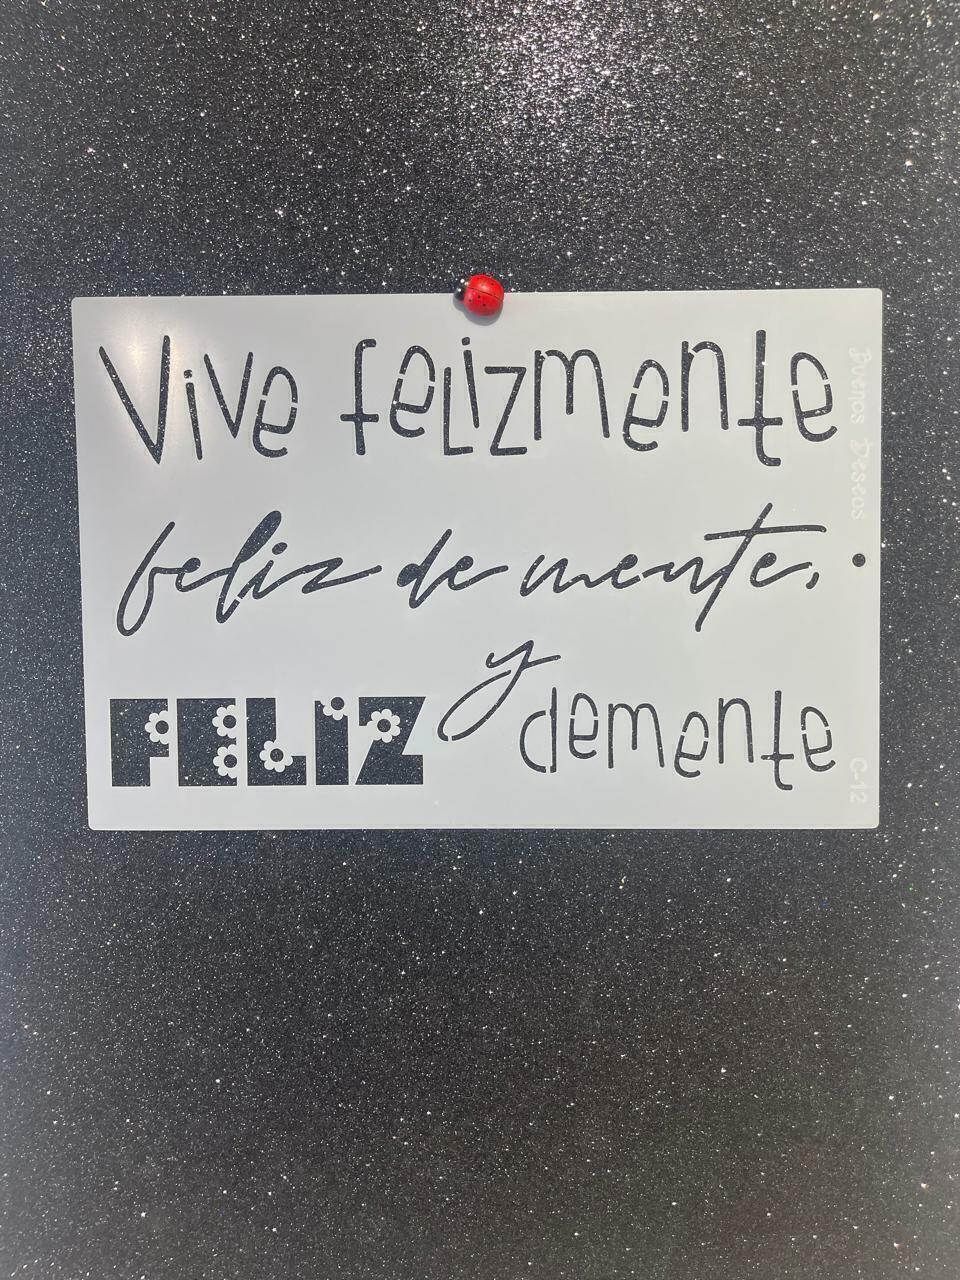 Vive felizmente
feliz de mente,
y
FELiZ demente
Buenos Deseos
C-12